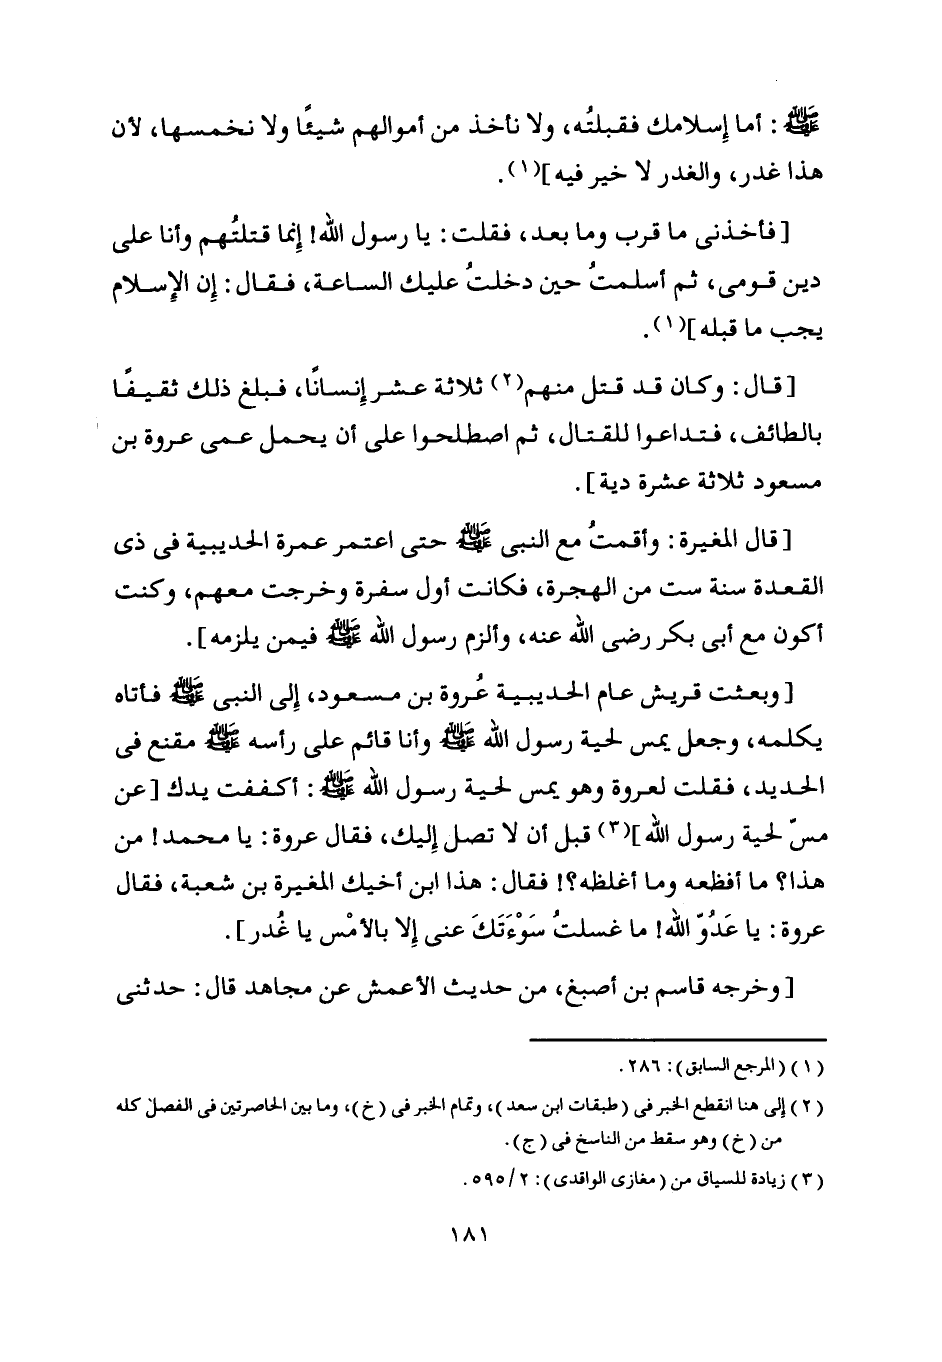 ﷺ : أما إسلامك فقبلتُه، ولا نأخذ من أموالهم شيئًا ولا نخمسها، لأن
هذا غدر، والغدر لا خير فيه](١).
[فأخذنى ما قرب وما بعد، فقلت: يا رسول الله! إنما قتلتُهم وأنا على
دين قومى، ثم أسلمتُ حين دخلتُ عليك الساعة، فقال: إن الإسلام
يجب ما قبله](١).
[قال: وكان قد قتل منهم(٢) ثلاثة عشر إنسانًا، فبلغ ذلك ثقيفًا
بالطائف، فتداعوا للقتال، ثم اصطلحوا على أن يحمل عمى عروة بن
مسعود ثلاثة عشرة دية].
[قال المغيرة: وأقمتُ مع النبى ﷺ حتى اعتمر عمرة الحديبية فى ذى
القعدة سنة ست من الهجرة، فكانت أول سفرة وخرجت معهم، وكنت
أكون مع أبى بكر رضى الله عنه، وألزم رسول الله ﷺ فيمن يلزمه].
[وبعثت قريش عام الحديبية عُروة بن مسعود، إلى النبى ﷺ فأتاه
يكلمه، وجعل يمس لحية رسول الله ﷺ وأنا قائم على رأسه ﷺ مقنع فى
الحديد، فقلت لعروة وهو يمس لحية رسول الله ﷺ : أكففت يدك [عن
مسّ لحية رسول الله](٣) قبل أن لا تصل إليك، فقال عروة: يا محمد! من
هذا؟ ما أفظعه وما أغلظه؟! فقال: هذا ابن أخيك المغيرة بن شعبة، فقال
عروة: يا عَدُوّ الله! ما غسلتُ سَوْءَتَكَ عنى إلا بالأمْس يا غُدر].
[وخرجه قاسم بن أصبغ، من حديث الأعمش عن مجاهد قال: حدثنى
(١) (المرجع السابق): ٢٨٦.
(٢) إلى هنا انقطع الخبر فى (طبقات ابن سعد)، وتمام الخبر فى (خ)، وما بين الحاصرتين فى الفصل كله
من (خ) وهو سقط من الناسخ فى (ج).
(٣) زيادة للسياق من (مغازى الواقدى): ٢/٥٩٥.
١٨١